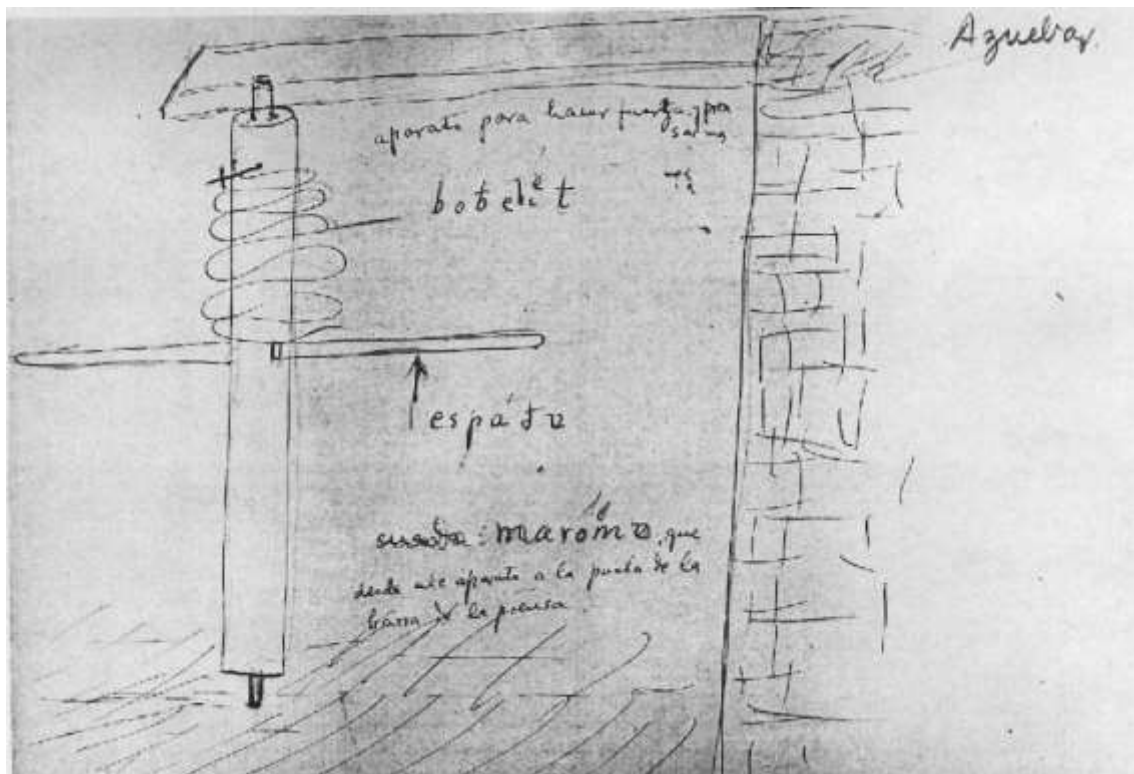 Azuebar.
aparato para hacer fuerza y pren
sarlas
espátu
maróma, que
desde este aparato a la punta de la
barra de la prensa.